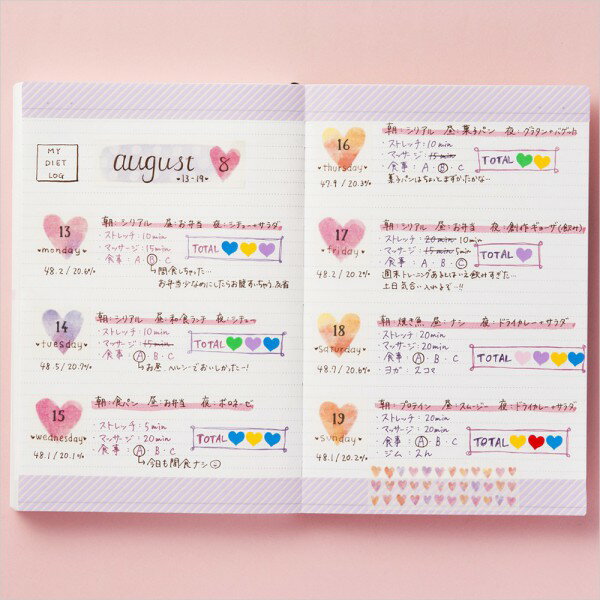 MY
DIET
LOG
august 8
•13-19•
13
monday
48.2 / 20.6%
朝：シリアル 昼：お弁当 夜：シチュー+サラダ
・ストレッチ：10min
・マッサージ：15min
・食事：A B C
TOTAL
↳間食しちゃった…
お弁当少なめにしたらお腹すいちゃう。反省
14
tuesday
48.5 / 20.7%
朝：シリアル 昼：和食ランチ 夜：シチュー
・ストレッチ：10min
・マッサージ：15min
・食事 A・B・C
TOTAL
↳お昼 ヘルシーでおいしかったー!
15
wednesday
48.1 / 20.1%
朝：食パン 昼：お弁当 夜：ボロネーゼ
・ストレッチ：5min
・マッサージ：20min
・食事：A B・C
TOTAL
↳今日も間食ナシ
16
thursday
47.9 / 20.3%
朝：シリアル 昼：菓子パン 夜：グラタン+バゲット
・ストレッチ：10min
・マッサージ：15min
・食事：A・B・C
TOTAL
菓子パンはちょっとまずかったかな…
17
friday
48.2 / 20.2%
朝：シリアル 昼：お弁当 夜：創作ギョーザ(飲み)
・ストレッチ：20min 10min
・マッサージ：15min 5min
・食事：A・B・C
TOTAL
週末トレーニングあるとはいえ飲みすぎた…
土日気合い入れるぞ…!!
18
saturday
48.7 / 20.6%
朝：焼き魚 昼：ナシ 夜：ドライカレー+サラダ
・ストレッチ：20min
・マッサージ：20min
・食事 A B・C
・ヨガ：2コマ
TOTAL
19
sunday
48.1 / 20.2%
朝：プロテイン 昼：スムージー 夜：ドライカレー+サラダ
・ストレッチ：20min
・マッサージ：20min
・食事：A B・C
・ジム：
TOTAL